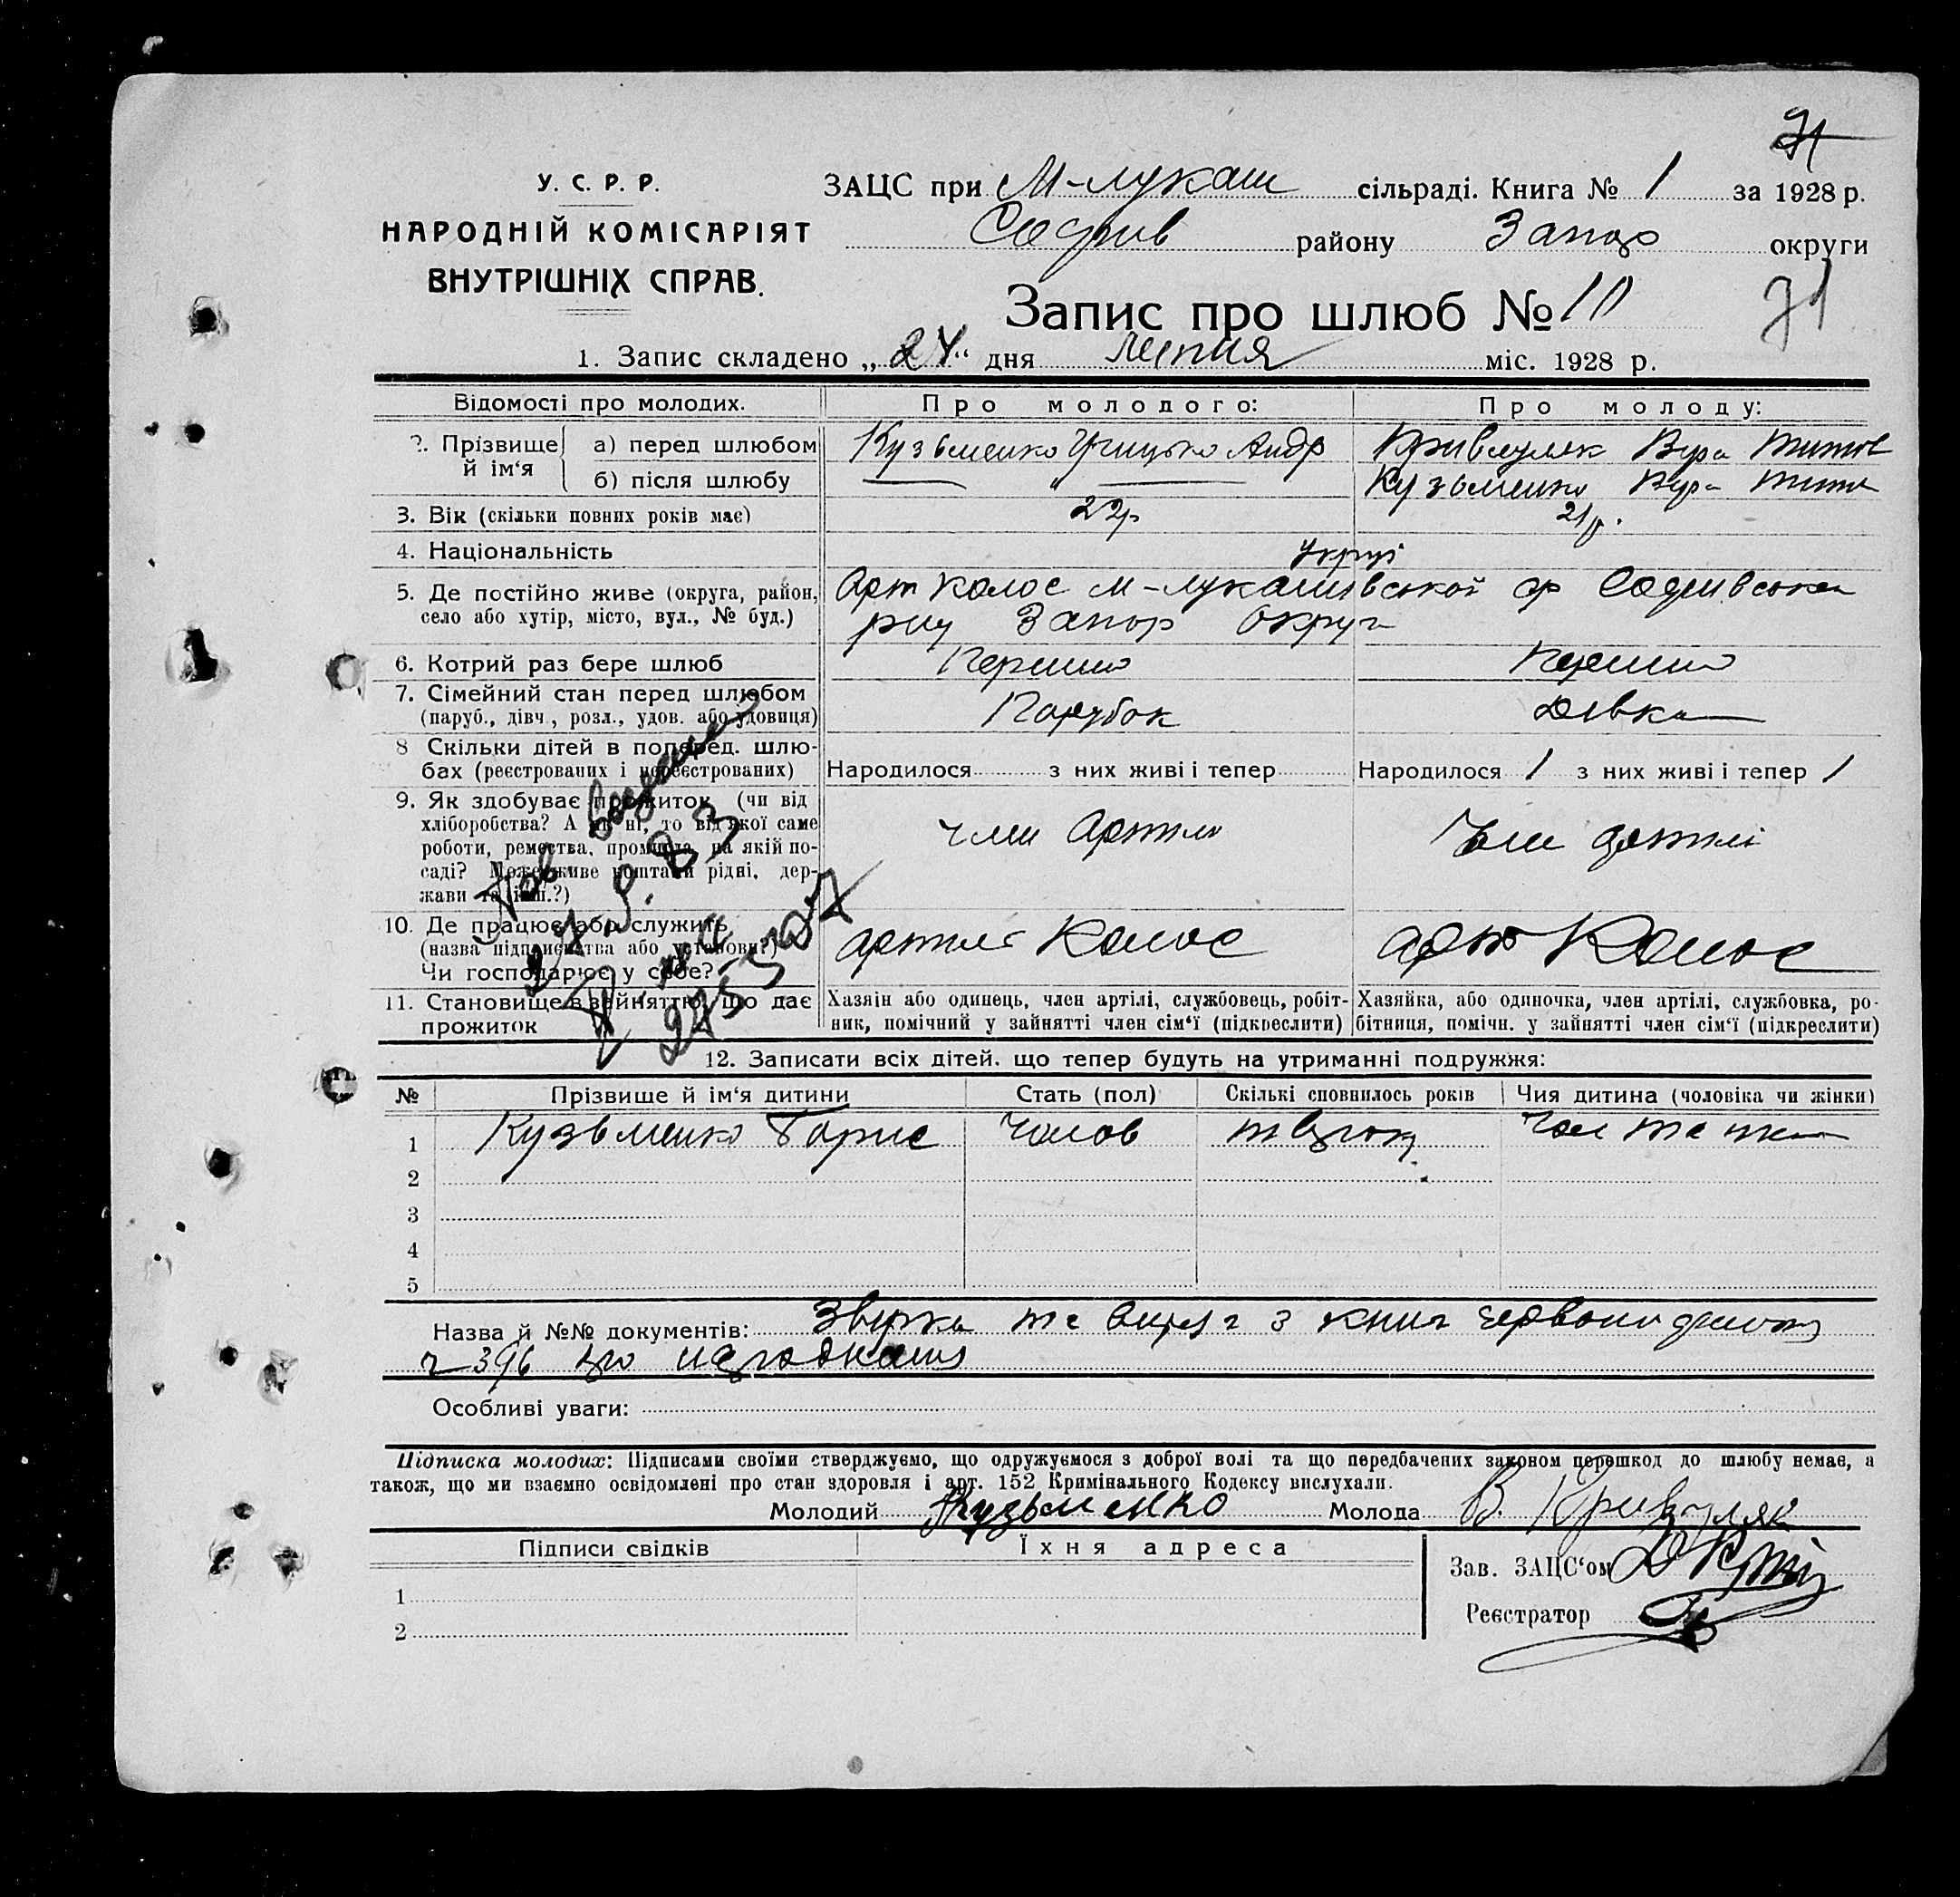 71
У. С. Р. Р.
НАРОДНІЙ КОМІСАРІЯТ
ВНУТРІШНІХ СПРАВ.
ЗАЦС при М-лукаш сільраді. Книга № 1 за 1928 р.
Софіїв району Запор округи
Запис про шлюб № 10
71
1. Запис складено „24“ дня липня міс. 1928 р.
Відомості про молодих. Про молодого: Про молоду:
2. Прізвище й ім‘я а) перед шлюбом Кузьменко Грицько Андр Кривуляк Віра Титов
б) після шлюбу " Кузьменко Віра Титов
3. Вік (скільки повних років має) 22р 21р.
4. Національність Укрці
5. Де постійно живе (округа, район, село або хутір, місто, вул., № буд.) Арт Колос М-лукашівської ср Софиівська
рну Запор Округи
6. Котрий раз бере шлюб Перший Перший
7. Сімейний стан перед шлюбом (паруб., дівч., розл., удов. або удовиця) Парубок Дівка
8 Скільки дітей в поперед. шлюбах (реєстрованих і нереєстрованих) Народилося з них живі і тепер Народилося 1 з них живі і тепер 1
9. Як здобуває прожиток (чи від
хліборобства? А як ні, то від якої саме
роботи, ремества, промисла, на якій по-
саді? Може живе коштами рідні, дер-
жави та інш.?) член Артілі член артілі
10. Де працює або служить
(назва підприємства або установи?)
Чи господарює у себе? артіль Колос арт Колос
11. Становище в зайняттю, що дає
прожиток
Хазяін або одинець, член артілі, службовець, робіт-
ник, помічний у зайнятті член сім‘ї (підкреслити)
Хазяйка, або одиночка, член артілі, службовка, ро-
бітниця, помічн. у зайнятті член сім‘ї (підкреслити)
27.9.83
12. Записати всіх дітей. що тепер будуть на утриманні подружжя:
№ Прізвище й ім‘я дитини Стать (пол) Скількі сповнилось років Чия дитина (чоловіка чи жінки)
1 Кузьменко Борис Чолов Чол та жін
2
3
4
5
Назва й №№ документів: Звірка та витяг з книг
396 про
Особливі уваги:
Підписка молодих: Підписами своїми стверджуємо, що одружуємося з доброї волі та що передбачених законом перешкод до шлюбу немає, а
також, що ми взаємно освідомлені про стан здоровля і арт. 152 Кримінального Кодексу вислухали.
Молодий Кузьменко Молода В. Кривуляк
Підписи свідків Їхня адреса
Зав. ЗАЦС‘ом
1
Реєстратор
2